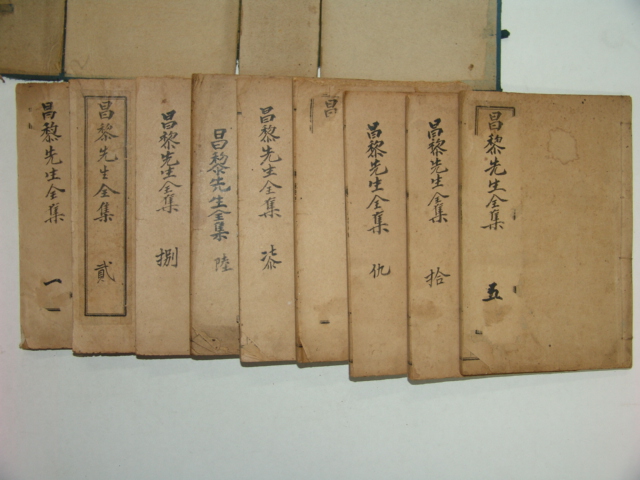 昌黎先生全集 一一
昌黎先生全集 貳
昌黎先生全集 捌
昌黎先生全集 陸
昌黎先生全集 柒
昌
昌黎先生全集 仇
昌黎先生全集 拾
昌黎先生全集 五